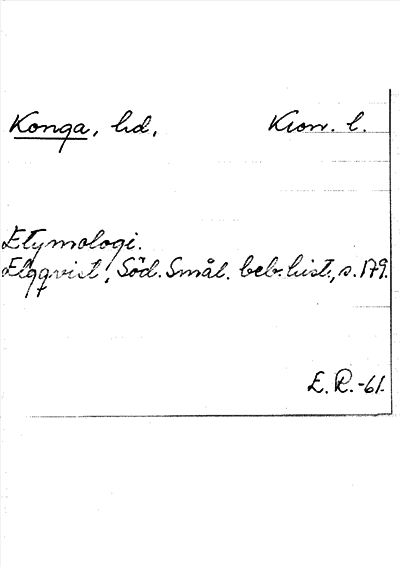 Konga, hd, Kron. l.
Etymologi.
Elqqvist, Söd. Smål. beb. hist., s. 179.
E. R. -61.